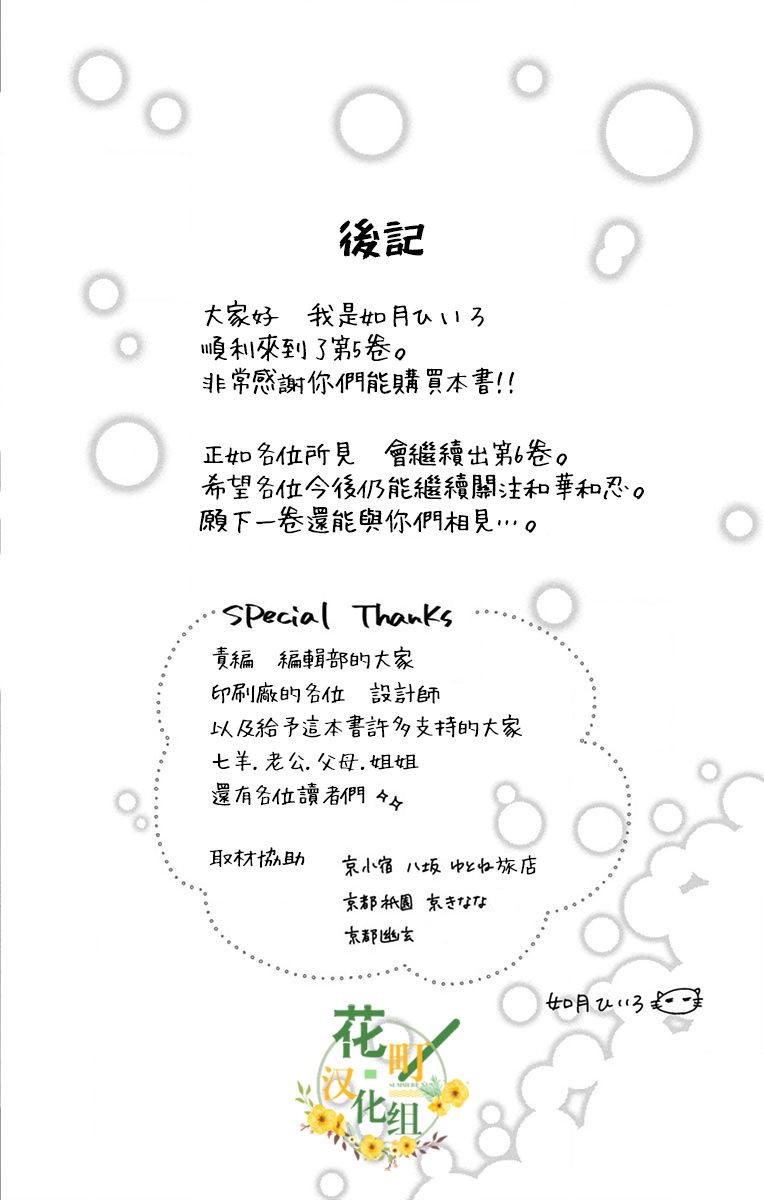 後記
大家好　我是如月ひいろ
順利來到了第5卷。
非常感謝你們能購買本書!!
正如各位所見　會繼續出第6卷。
希望各位今後仍能繼續關注和華和忍。
願下一卷還能與你們相見…。
Special Thanks
責編　編輯部的大家
印刷廠的各位　設計師
以及給予這本書許多支持的大家
七羊.老公.父母.姐姐
還有各位讀者們
取材協助　京小宿 八坂 ゆとね旅店
京都祇園 京きなな
京都幽玄
如月ひいろ
花町
汉化组